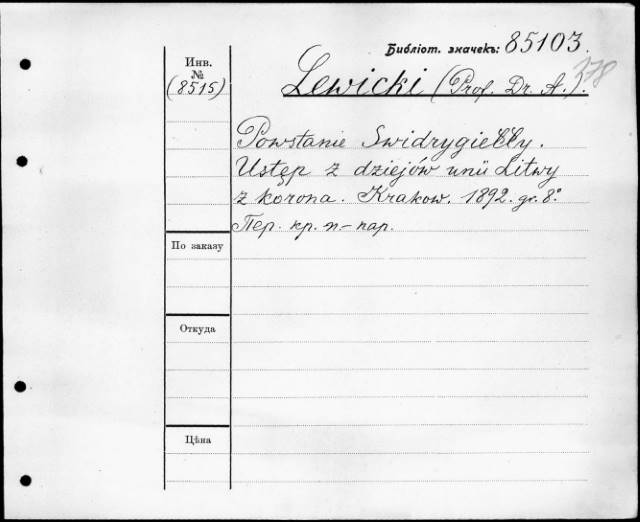 Библіот. значекъ: 85103.
378
Инв.
№
(8515)
Lewicki (Prof. Dr. A.).
Powstanie Swidrygiełły.
Ustęp z dziejów unii Litwy
z korona. Krakow. 1892. gr. 8°
Пер. кр. п-пар.
По заказу
Откуда
Цѣна